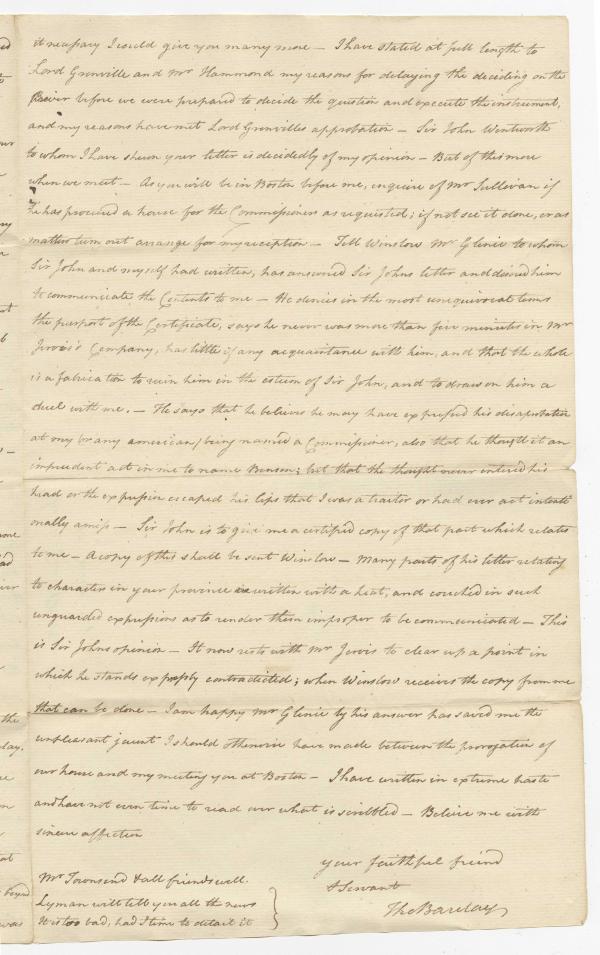 it necessary I could give you many more — I have stated at full length to
Lord Grenville and Mr Hammond my reasons for delaying the deciding on the
River before we were prepared to decide the question and execute the instrument,
and my reasons have met Lord Grenvilles approbation — Sir John Wentworth
to whom I have shewn your letter is decidedly of my opinion — But of this more
when we meet — As you will be in Boston before me, enquire of Mr Sullivan if
he has procured a house for the Commissioners as requested; if not see it done, or as
matters turn out arrange for my reception — Tell Winslow Mr Glenie to whom
Sir John and myself had written, has answered Sir Johns letter and desired him
to communicate the Contents to me — He denies in the most unequivocal terms
the purport of the Certificate, says he never was more than five minutes in Mr
Jervis's Company, has little if any acquaintance with him, and that the whole
is a fabrication to ruin him in the esteem of Sir John, and to draw on him a
duel with me. — He says that he believes he may have expressed his disapprobation
at my (or any american) being named a Commissioner, also that he thought it an
imprudent act in me to name Benson; but that the thought never entered his
head or the expression escaped his lips that I was a traitor or had ever act intenti
onally amiss — Sir John is to give me a certified copy of that part which relates
to me — A copy of this shall be sent Winslow — Many parts of his letter relating
to characters in your province is written with a heat, and couched in such
unguarded expressions as to render them improper to be communicated — This
is Sir Johns opinion — It now rests with Mr Jervis to clear up a point in
which he stands expressly contradicted; when Winslow receives the copy from me
that can be done — I am happy Mr Glenie by his answer has saved me the
unpleasant jaunt I should otherwise have made between the prorogation of
our house and my meeting you at Boston — I have written in extreme haste
and have not even time to read over what is scribbled — Believe me with
sincere affection
your faithful friend
& Servant
Tho Barclay
Mrs Townsend & all friends well.
Lyman will tell you all the news
It is too bad, had I time to detail it